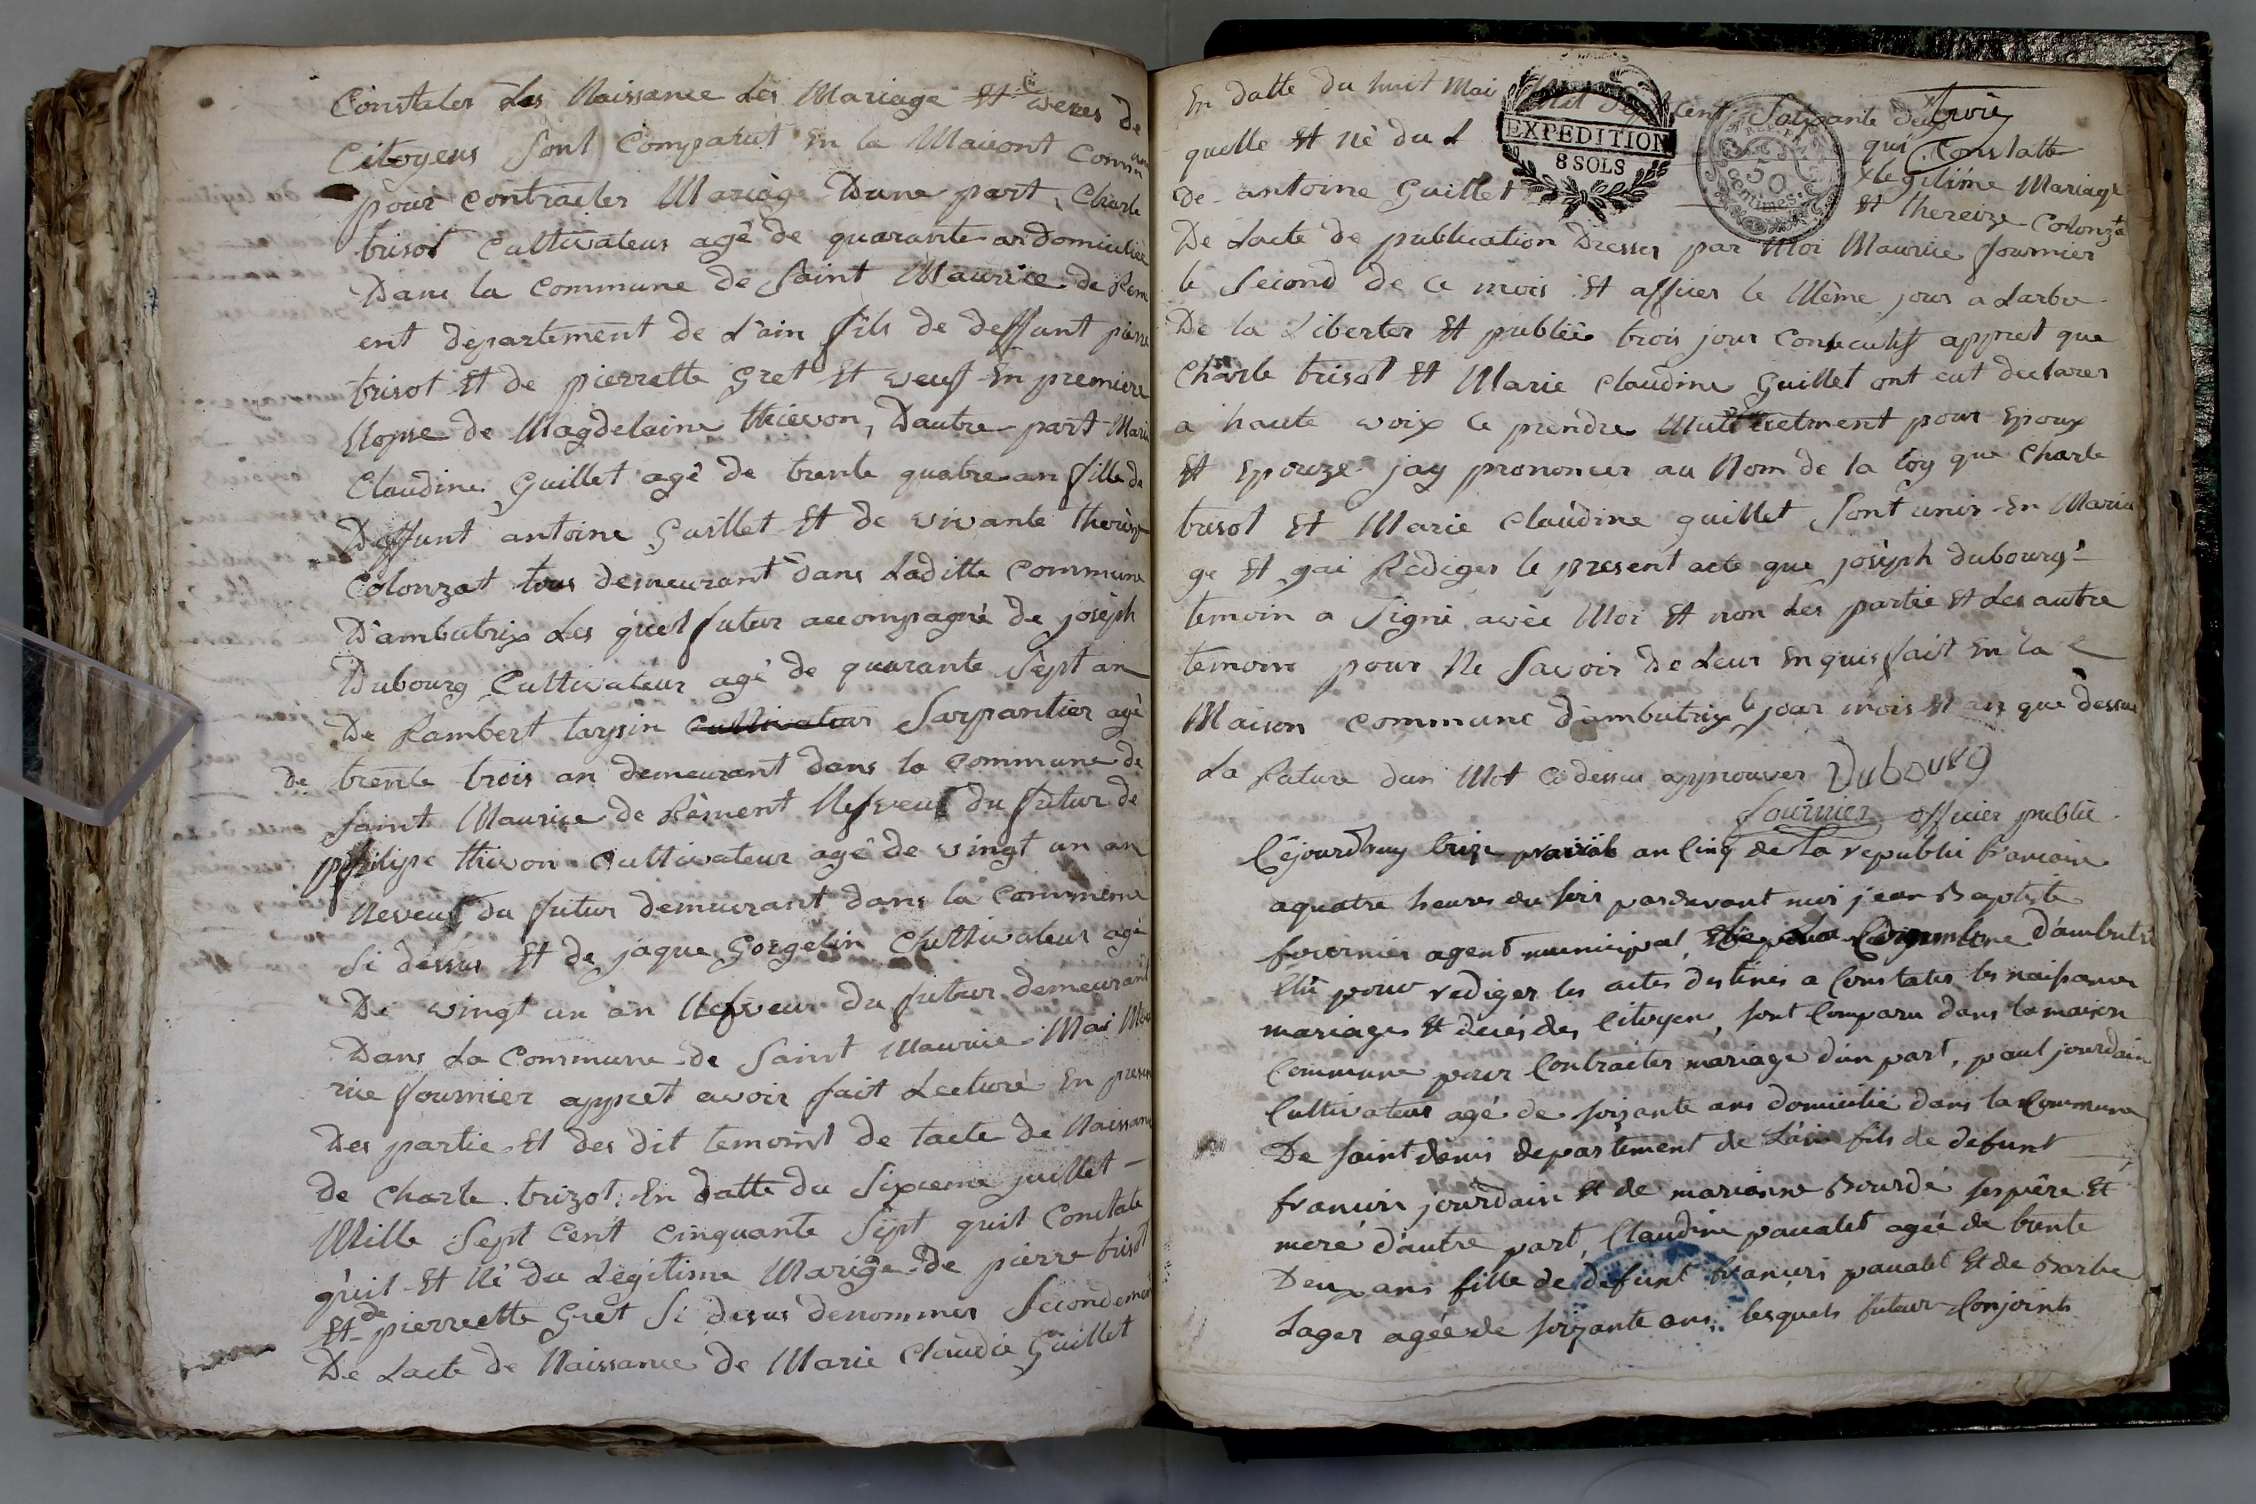 Constater Les Naissance Les Mariage Et deces de
Citoyens Sont Comparut En la Maisont Commun
pour contracter Mariage Dune part, Charle
trisot Cultivateur agé de quarante an domicilié
Dans la Commune de Saint Maurice de Rem
ent departement de L'ain fils de deffunt pierre
trisot Et de pierrette gret Et veuf En premiere
Nopse de Magdelaine thievon, Dautre part Marie
Claudine Guillet agé de trente quatre an fille de
Deffunt antoine Guillet Et de vivante thereze
Colonzat tous demeurant dans Laditte Commune
D'ambutrix Les quel futur accompagné de joseph
Dubourg Cultivateur agé de quarante Sept an
De Rambert tarpin cultivateur Sarpantier agé
de trente trois an demeurant dans la Commune de
Saint Maurice de Rèment Nefveuf du futur de
philipe thivon Cultivateur agé de vingt un an
Neveuf du futur demeurant dans la Commune
Si dessus Et de jaque gorgelin Cultivateur agé
De vingt un an Nefveur du futur demeurant
Dans La Commune de Saint Maurice Moi Mau
rice fournier appret avoir fait Lecture En presen
Des partie Et des dit temoint de lacte de Naissanc
de Charle trizot En datte du Sixieme juillet
Mille Sept Cent Cinquante Sept quil Constate
quil Et Né du Legitime Marige de pierre trisot
Et de pierrette Gret Si desus denommer Secondement
De Lacte de Naissance de Marie Claudie Guillet
En datte du huit Mai Mil Sept Cent Soixante deux troie
quelle Et né du L qui Constatte
EXPEDITION
8 SOLS
50
centimes
De antoine Guillet Legitime Mariage
Et thereize Colonzat
De Lacte de publication Dresser par Moi Maurice fournier
le Second de ce mois Et afficer le Même jour a Larbre
De la Liberter Et publiée trois jour Consecutif appret que
Charle trisol Et Marie Claudine Guillet ont eut declarer
a haute voix Ce prendre Mutuietment pour Epoux
Et Epouze jay prononcer au Nom de la loy que Charle
trisol Et Marie Claudine guillet Sont unis En Maria
ge Et gai Rédiger le present acte que joseph dubourg
temoin a Signé avec Moi Et non Les partie Et Les autre
temoins pour Ne Savoir de Leur Enquis fait En la
Maison Commune d'ambutrix le jour mois Et an que dessus
La Rature dun Mot Cidessus approuver Dubourg
fournier officier public
Cejourdhuy treize prairial an Cinq de la republi francaise
aquatre heures du soir pardevant moi jean Baptiste
fournier agent municipal, de la Commune d'ambutri
Elu pour rediger les actes destinés a Constater les naissances
mariages Et decés des Citoyen, sont Comparu dans la maison
Commune pour Contracter mariage d'un part, paul jourdain
Cultivateur agé de soixante ans domicilié dans la Commune
De saint denis departement de L'ain fils de defunt
francois jourdain Et de marianne Bourdé ses père Et
meré d'autre part, Claudine pauatet agée de trente
Deux ans fille de defunt francois pauatet Et de Barbe
Lager agée de soixante ans, lesquels futur Conjoints